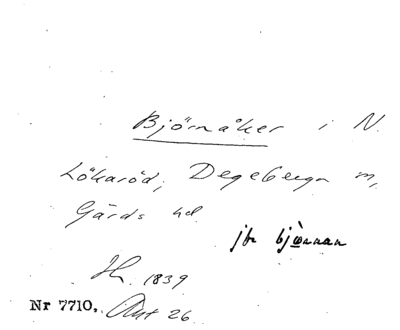 Björnåker i N.
Lökaröd, Degeberga
Gärds hd
jfr
1839
Nr 7710. Ant 26